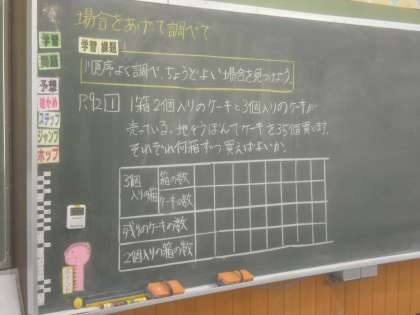 場合をあげて調べて
学習課題
順序よく調べ、ちょうどよい場合を見つけよう。
P.92 1 1箱2個入りのケーキと3個入りのケーキが
売っている。
ケーキを35個買います。
それぞれ何箱ずつ買えばよいか。
3個入りの箱 箱の数
ケーキの数
残りのケーキの数
2個入りの箱の数
学習
問題
予想
確かめ
ステップ
ジャンプ
ホップ